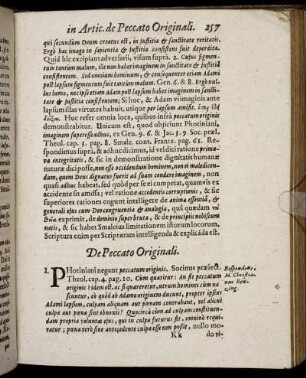 in Artic. de Peccato Originali. 257
qui secundum Deum creatus est, in justitia & sanctitate veritatis.
Ergo hæc imago in sapientia & justitia consistens fuit deperdita.
Quid hîc excipiant adversarii, visum suprà. 2. Caput
tantùm malum, Carens habet imaginem in sanctitate & justitia
consistentem. Sed omnium hominum, & consequenter etiam Adami
post lapsum figmentum fuit tantùm malum. Gen. 6. & 8. Ergò nul-
lus homo, neq; ipse etiam Adam post lapsum habet imaginem in sanctita-
te & justitia consistentem. Si hoc, & Adam vi imaginis ante
lapsum illas virtutes habuit, utique per lapsum amisit.
Huc refer omnia loca, quibus infrà peccatum originis
demonstrabitur. Unicum est, quod objiciunt Photiniani,
imaginem superesse adhuc, ex Gen. 9. 6. & Jac. 3. 9. Soc. præl.
Theol. cap. 3. pag. 8. Smalc. cont. Franz. pag. 61. Re-
spondimus suprà, & adhuc dicimus, id vel dici ratione prima-
va integritatis, & sic in demonstratione dignitatis humanæ
naturæ dici posse, non esse occidendum hominem, non ei maledicen-
dum, quem Deus dignatus fuerit ad suam condere imaginem, non
quasi adhuc habeat, sed quòd per se ei competat, quamvis ex
accidente sit amissa; vel ratione accidentis corruptionis, & sic
superiores rationes cogunt intelligere de anima essentiâ, &
generali ejus cum Deo congruentia & analogia, quâ quædam
exprimit, de dominio super bruta, & de principiis nobiscum
natis, & sic habet Smalcius limitationem istorum locorum,
Scriptura enim per Scripturam intelligenda & explicanda est.
De Peccato Originali.
1. PHotiniani negant peccatum originis. Socinus prælect.
Theol. cap. 4. pag. 10. Cùm quæritur: An sit peccatum
originis? idem est, ac si quæreretur, utrum homines cùm na-
scuntur, eò quòd ab Adamo originem ducunt, propter ipsius
Adami lapsum, culpam aut pœnam contrahant, vel alicui
culpæ aut pœnæ sint obnoxii? Quæ circà cùm ad culpam constituen-
dam propria voluntas ejus, qui in culpa futurus est, omninò requi-
ratur; pœna verò sine antecedente culpa esse non possit, nullo mo-
Kk do vi-